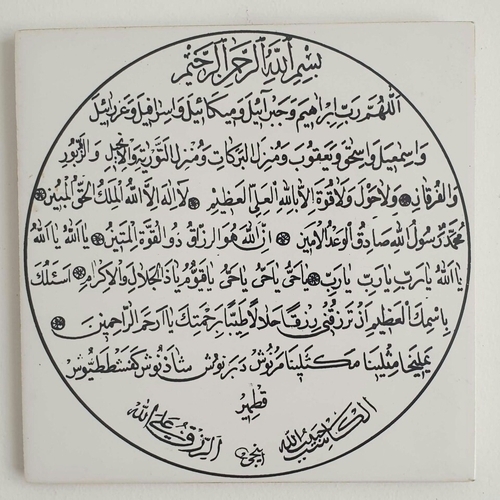 بسم الله الرحمن الرحيم
اللهم رب ابراهيم وجبرائيل وميكائيل واسرافيل وعزرائيل
واسمعيل واسحق ويعقوب ومنزل البركات ومنزل التورية والانجيل والزبور
والفرقان ولاحول ولاقوة الا بالله العلي العظيم لا اله الا الله الملك الحق المبين
محمد رسول الله صادق الوعد الامين ان الله هو الرزاق ذو القوة المتين يا الله يا الله
يا الله يارب يارب يارب ياحي ياحي ياحي ياقيوم ياذا الجلال والاكرام اسئلك
باسمك العظيم ان ترزقني رزقا حلالا طيبا برحمتك يا ارحم الراحمين
يمليخا مثلينا مكثلينا مرنوش دبرنوش شاذنوش كفشططيوش
قطمير
الكاسب حبيب الله الرزق على الله